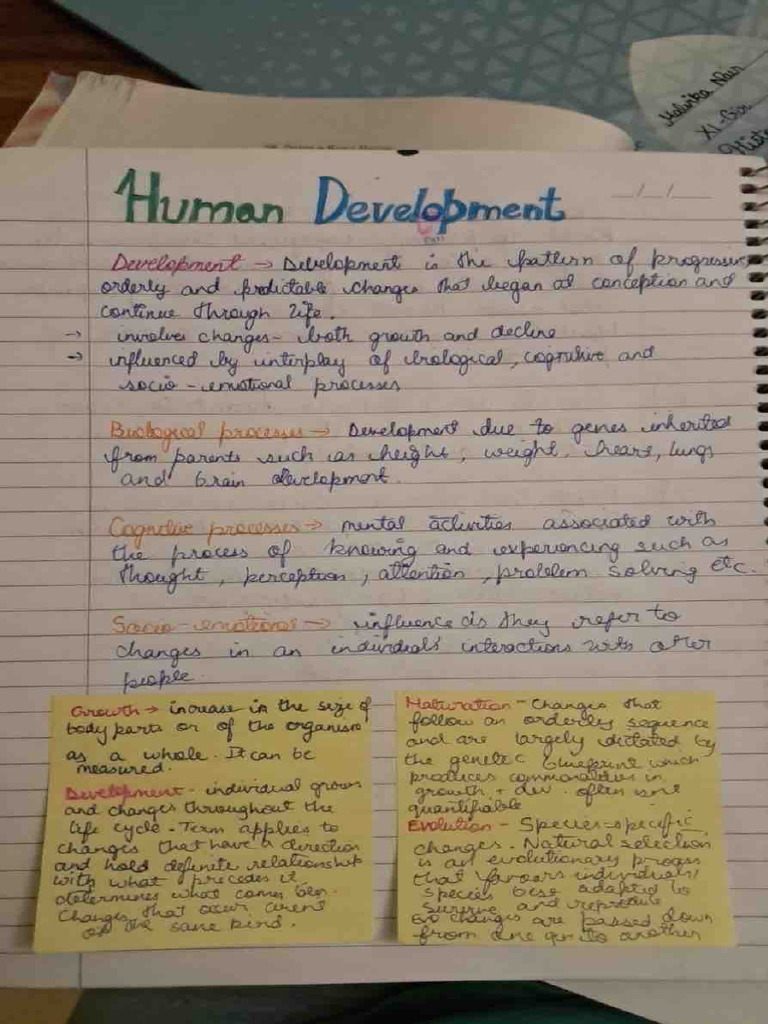 Malvika Nair
XI-
Human Development
__/__/__
Development → Development is the pattern of progressive
orderly and predictable changes that began at conception and
continue through life.
→ involves changes - both growth and decline
→ influenced by interplay of biological, cognitive and
socio-emotional processes
Biological processes → Development due to genes inherited
from parents such as height, weight, heart, lungs
and brain development.
Cognitive processes → mental activities associated with
the process of knowing and experiencing such as
thought, perception, attention, problem solving etc.
Socio-emotional → influence is they refer to
changes in an individual's interactions with other
people.
Growth → increase in the size of
body parts or of the organism
as a whole. It can be
measured.
Development - individual grows
and changes throughout the
life cycle. Term applies to
changes that have a direction
and hold definite relationship
with what precedes it
determines what comes
Changes that occur aren't
of the same kind.
Maturation - changes that
follow an orderly sequence
and are largely dictated by
the genetic blueprint which
produces commonalities in
growth + dev. often isnt
quantifiable
Evolution - Species-specific
changes. Natural selection
is an evolutionary process
that favours individuals/
species best adapted to
survive and reproduce
changes are passed down
from one gen to another